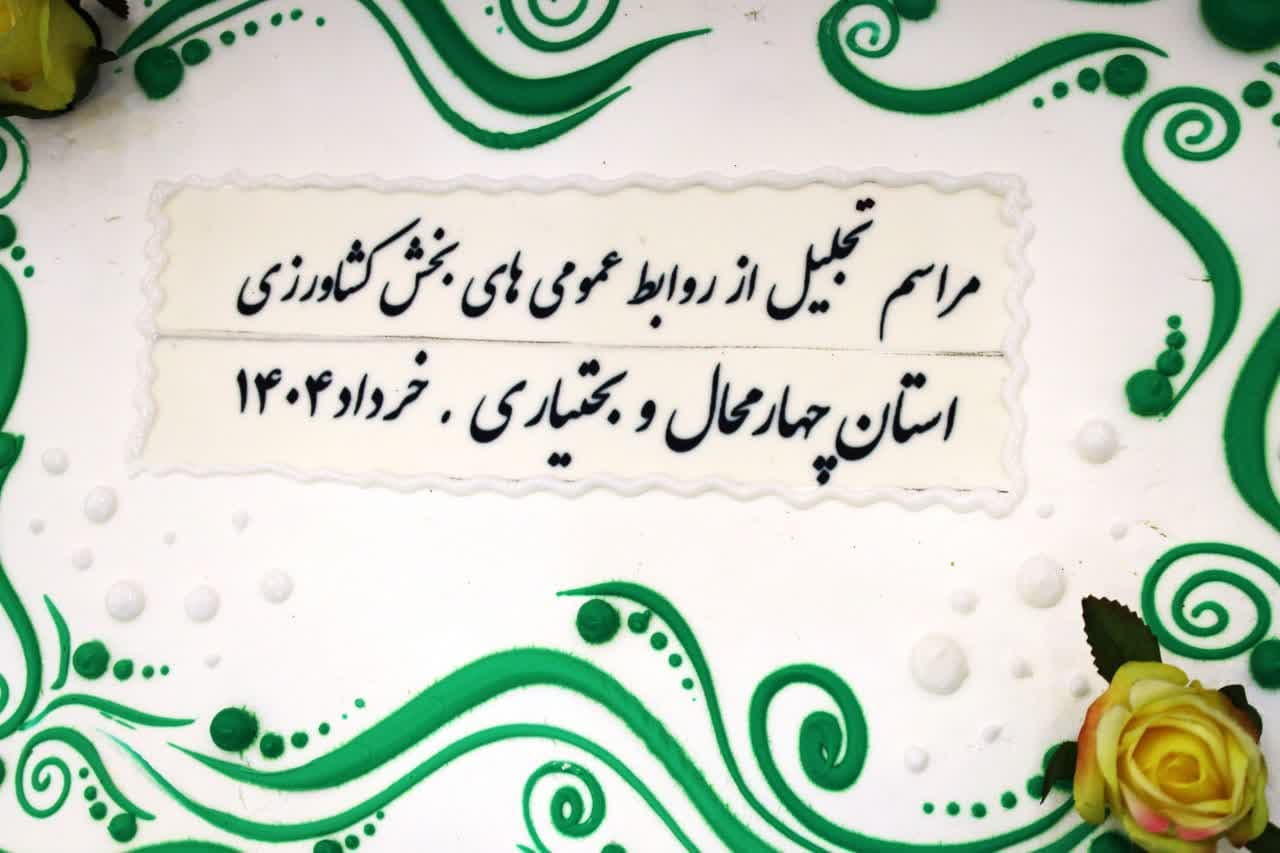 مراسم تجلیل از روابط عمومی های بخش کشاورزی
استان چهارمحال و بختیاری . خرداد ۱۴۰۴